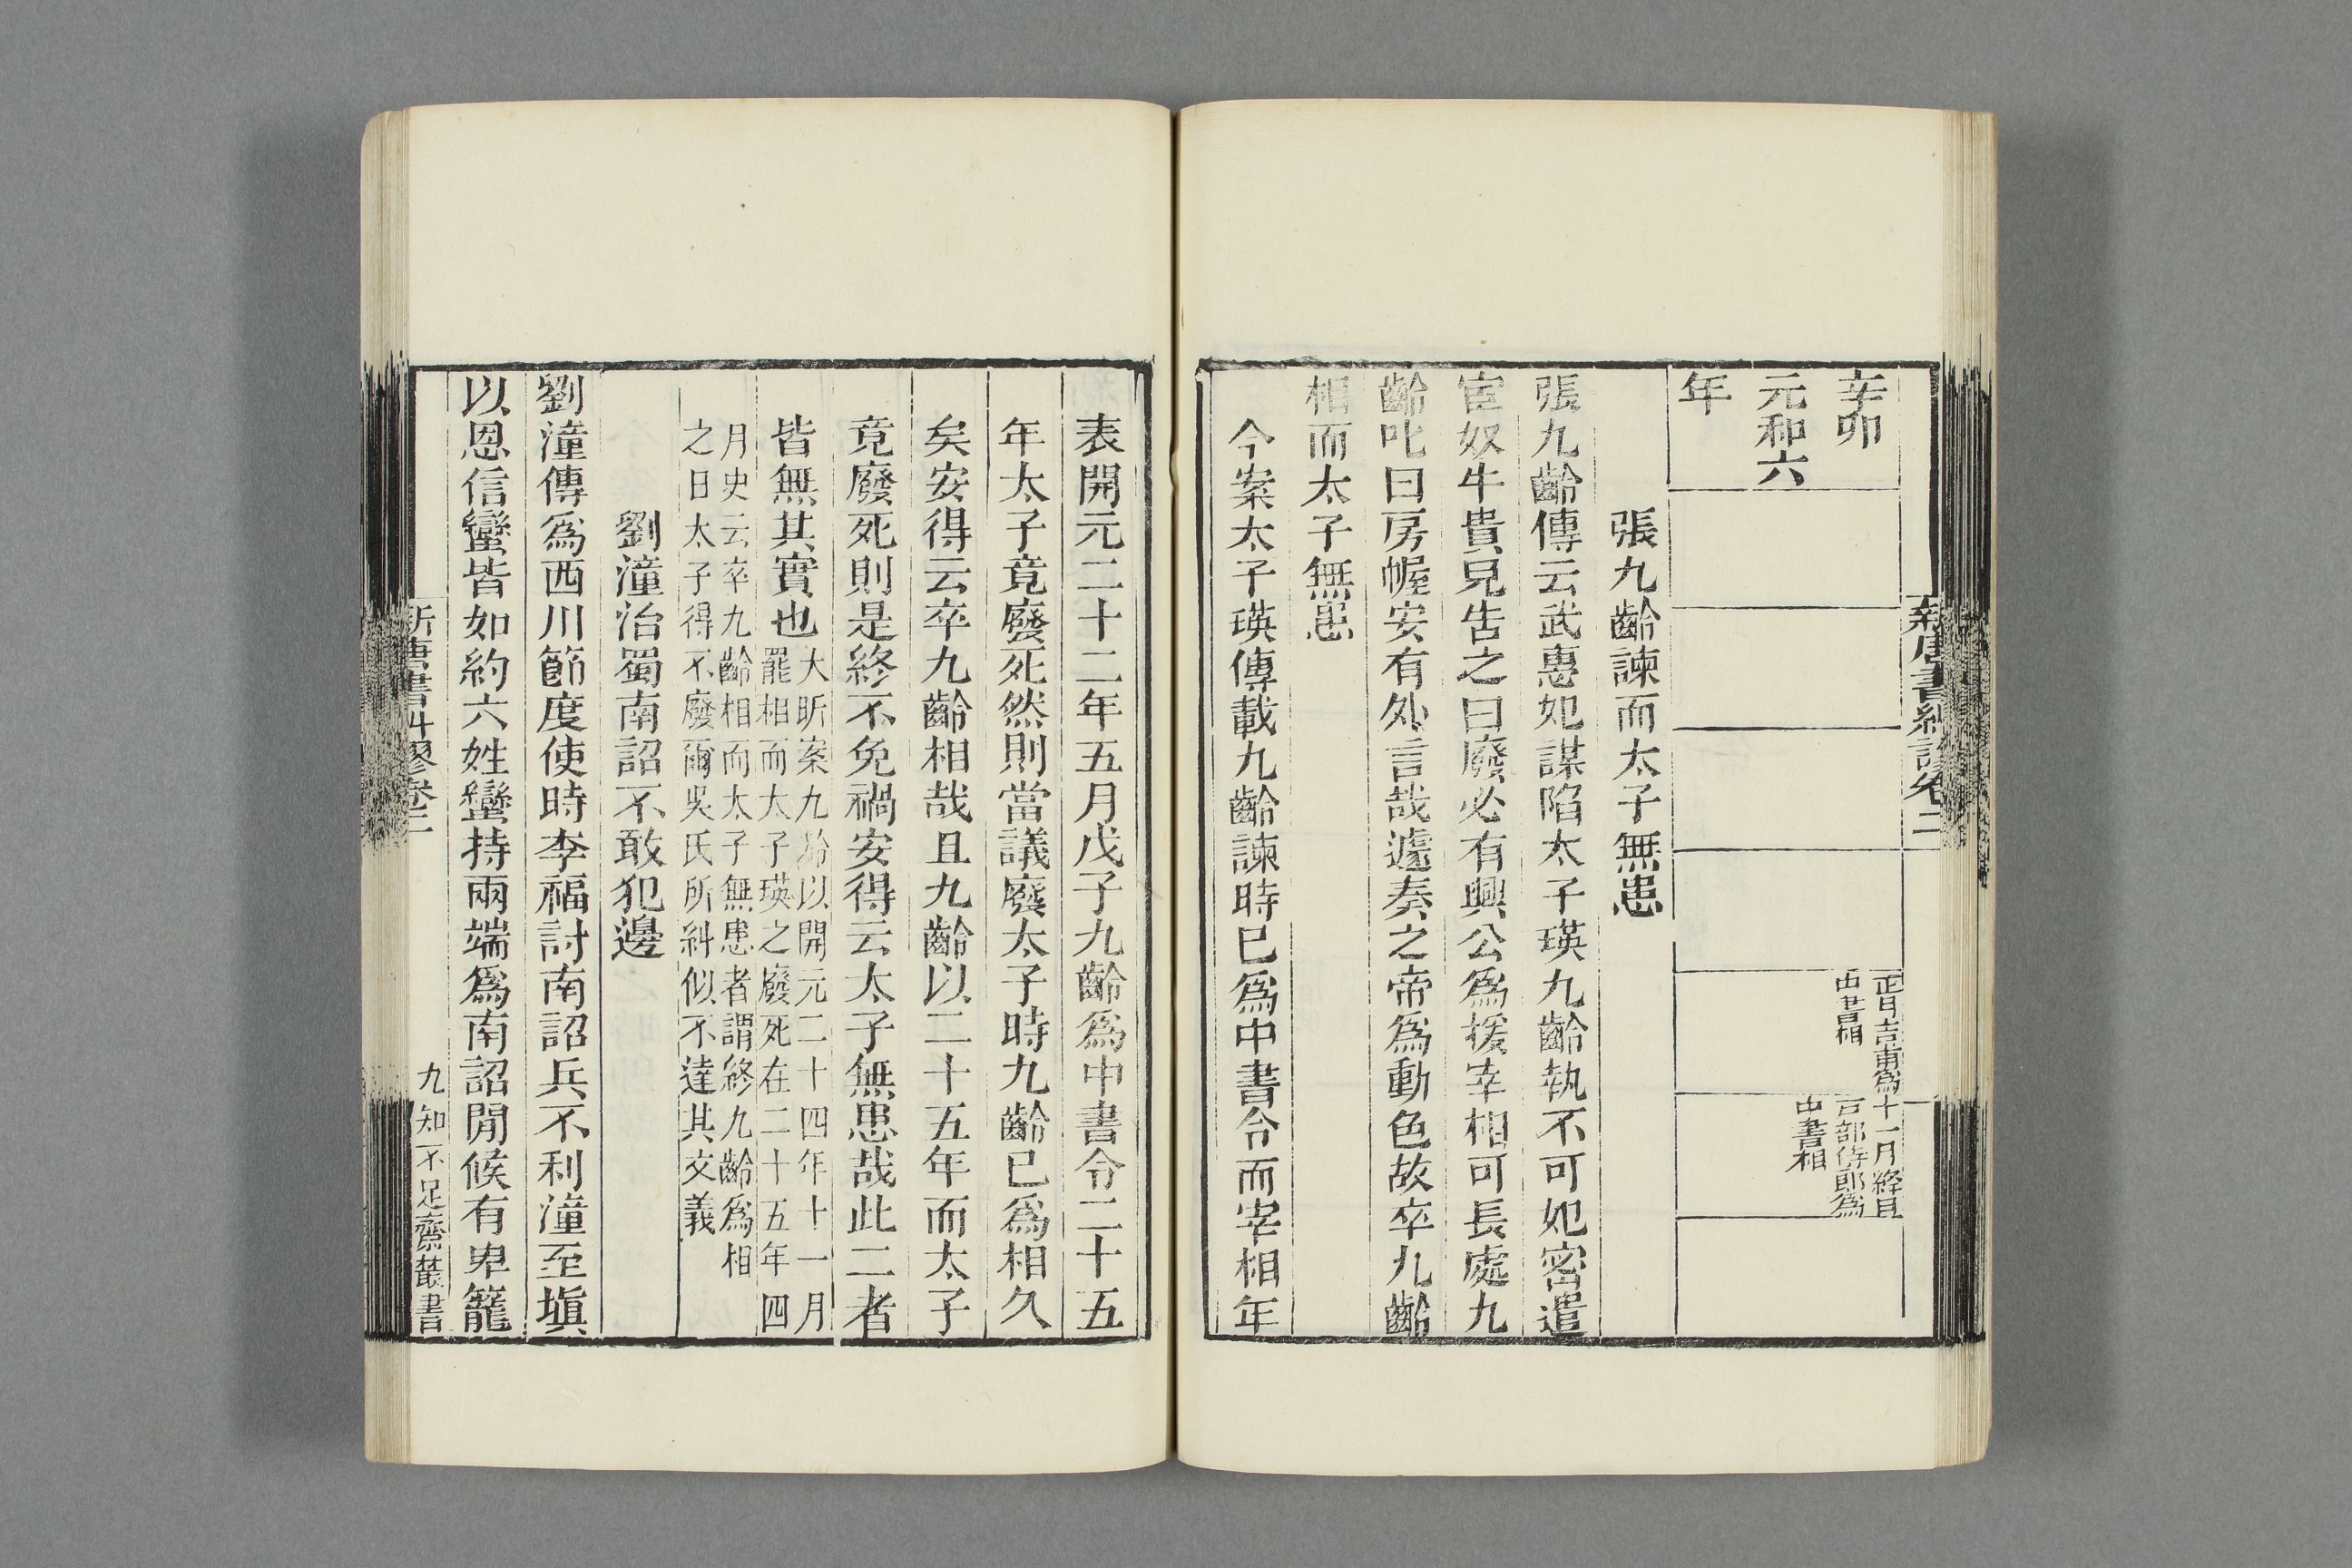 新唐書糾謬卷二
辛卯
元和六
年
正月吉甫爲
中書相
十一月絳自
戶部侍郎爲
中書相
張九齡諫而太子無患
張九齡傳云武惠妃謀陷太子瑛九齡執不可妃密遣
宦奴牛貴兒告之曰廢必有興公爲援宰相可長處九
齡叱曰房幄安有外言哉遽奏之帝爲動色故卒九齡
相而太子無患
今案太子瑛傳載九齡諫時已爲中書令而宰相年
表開元二十二年五月戊子九齡爲中書令二十五
年太子竟廢死然則當議廢太子時九齡已爲相久
矣安得云卒九齡相哉且九齡以二十五年而太子
竟廢死則是終不免禍安得云太子無患哉此二者
皆無其實也大昕案九齡以開元二十四年十一月
罷相而太子瑛之廢死在二十五年四
月史云卒九齡相而太子無患者謂終九齡爲相
之日太子得不廢爾吳氏所糾似不達其文義
劉潼治蜀南詔不敢犯邊
劉潼傳爲西川節度使時李福討南詔兵不利潼至塡
以恩信蠻皆如約六姓蠻持兩端爲南詔閒候有卑籠
新唐書糾謬卷二
九
知不足齋叢書